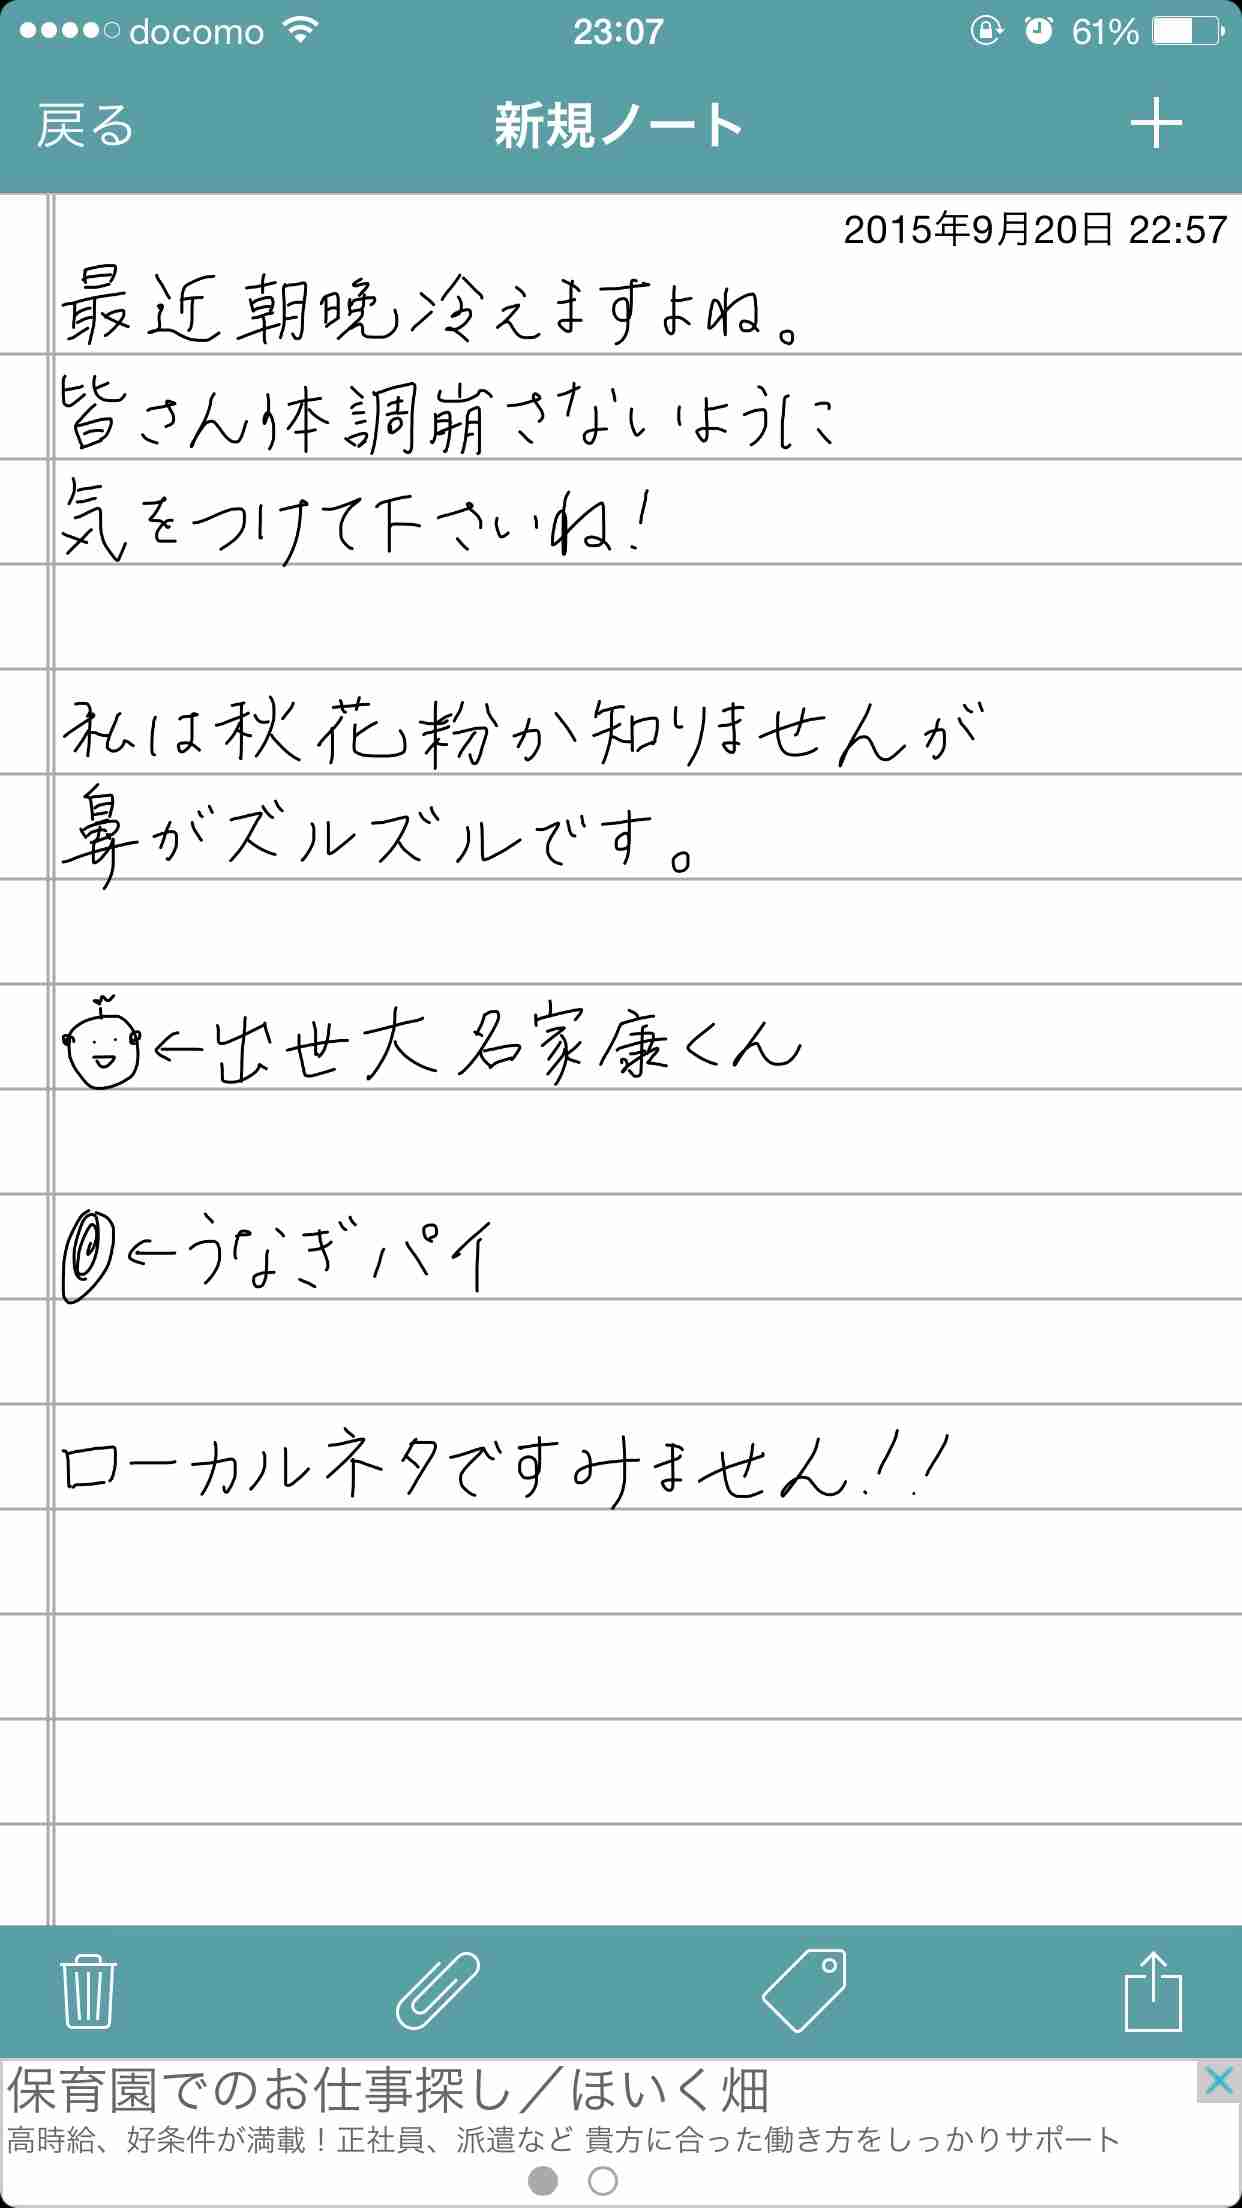 docomo 23:07 61%
戻る 新規ノート
2015年9月20日 22:57
最近朝晩冷えますよね。
皆さん体調崩さないように
気をつけて下さいね!
私は秋花粉か知りませんが
鼻がズルズルです。
←出世大名家康くん
←うなぎパイ
ローカルネタですみません!!
保育園でのお仕事探し／ほいく畑
高時給、好条件が満載！正社員、派遣など 貴方に合った働き方をしっかりサポート